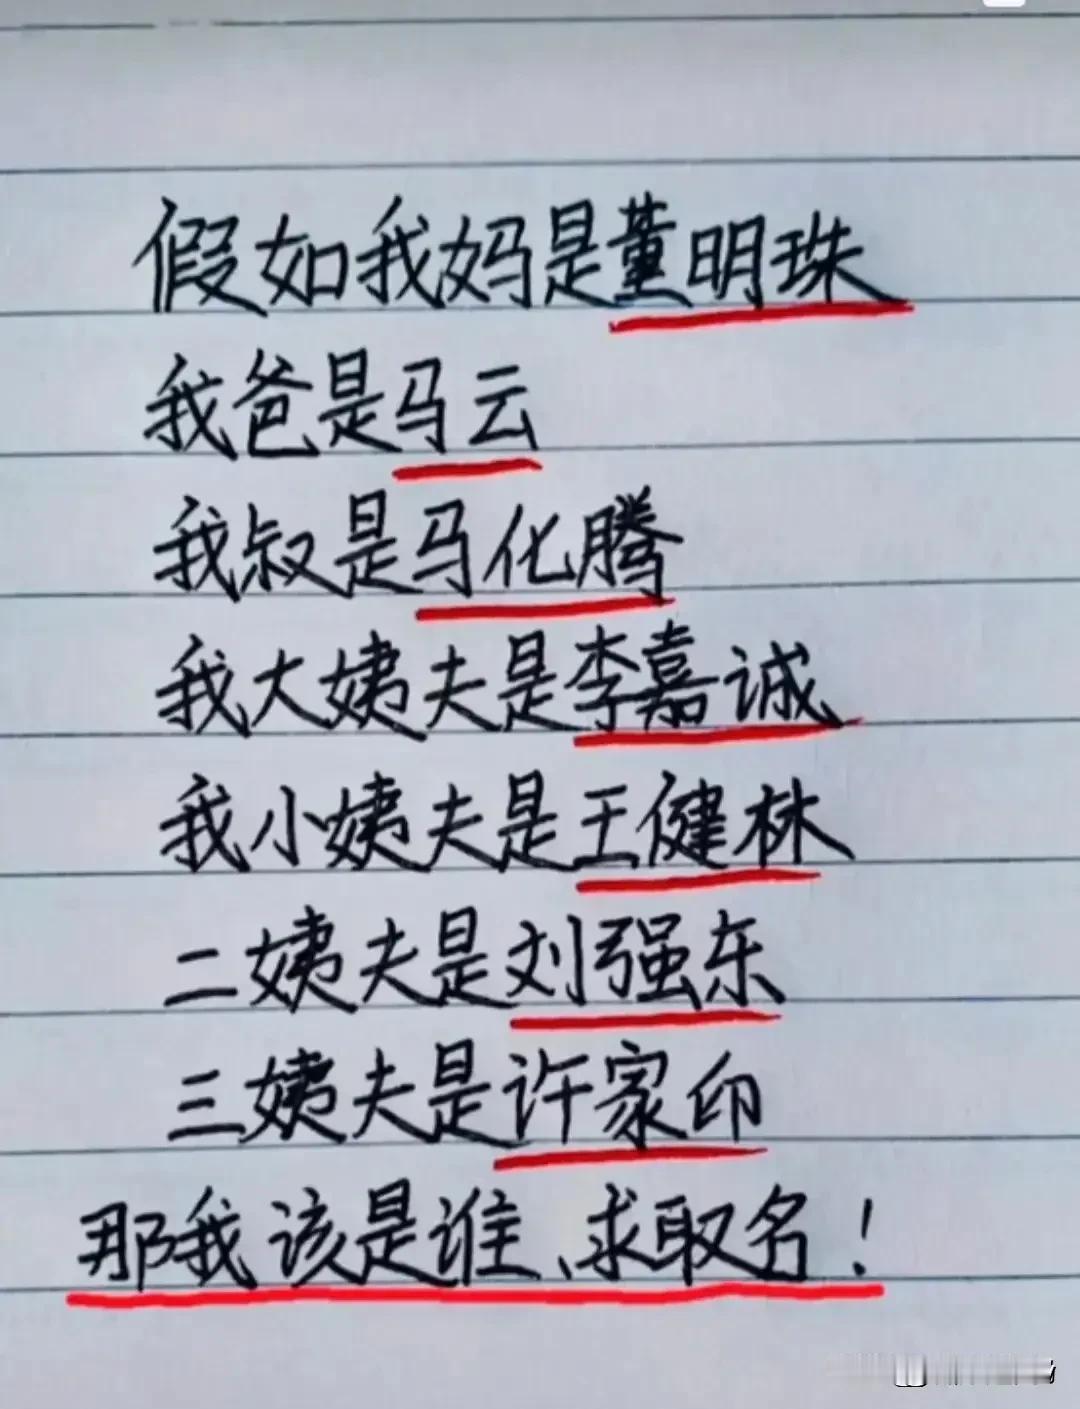 假如我妈是董明珠
我爸是马云
我叔是马化腾
我大姨夫是李嘉诚
我小姨夫是王健林
二姨夫是刘强东
三姨夫是许家印
那我该是谁、求取名！